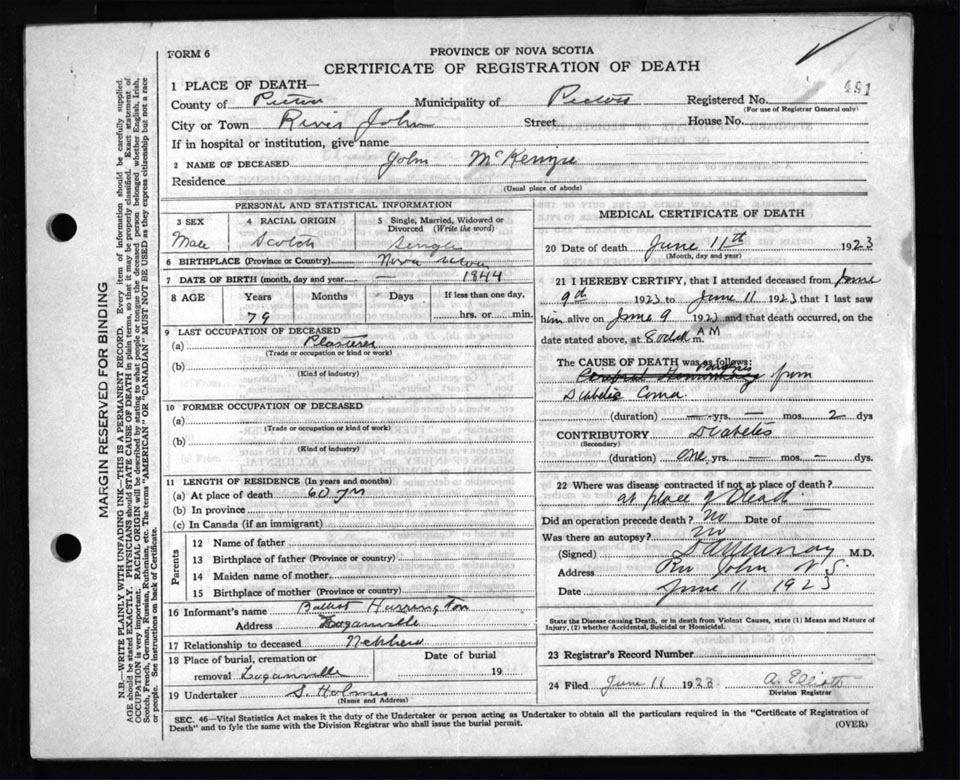 FORM 6
PROVINCE OF NOVA SCOTIA
CERTIFICATE OF REGISTRATION OF DEATH
1 PLACE OF DEATH—
County of Pictou Municipality of Pictou Registered No. 491
(For use of Registrar General only)
City or Town River John Street House No.
If in hospital or institution, give name
2 NAME OF DECEASED John McKenzie
Residence
(Usual place of abode)
PERSONAL AND STATISTICAL INFORMATION
3 SEX 4 RACIAL ORIGIN 5 Single, Married, Widowed or Divorced (Write the word)
Male Scotch Single
6 BIRTHPLACE (Province or Country) Nova Scotia
7 DATE OF BIRTH (month, day and year) — 1844
8 AGE Years Months Days If less than one day,
79 hrs. or min.
9 LAST OCCUPATION OF DECEASED
(a) Plasterer
(Trade or occupation or kind or work)
(b)
(Kind of industry)
10 FORMER OCCUPATION OF DECEASED
(a)
(Trade or occupation or kind of work)
(b)
(Kind of industry)
11 LENGTH OF RESIDENCE (In years and months)
(a) At place of death 60 yrs
(b) In province
(c) In Canada (if an immigrant)
Parents
12 Name of father
13 Birthplace of father (Province or country)
14 Maiden name of mother
15 Birthplace of mother (Province or country)
16 Informant's name Harrington
Address Loganville
17 Relationship to deceased Nephew
18 Place of burial, cremation or Date of burial
removal Loganville 19
19 Undertaker S. Holmes
(Name and Address)
MEDICAL CERTIFICATE OF DEATH
20 Date of death June 11th 1923
(Month, day and year)
21 I HEREBY CERTIFY, that I attended deceased from June
9th 1923 to June 11 1923 that I last saw
him alive on June 9 1923 and that death occurred, on
date stated above, at 8 oclock AM m.
The CAUSE OF DEATH was as follows:
from
Diabetic Coma
(duration) — yrs. — mos. 2 dys
CONTRIBUTORY Diabetis
(Secondary)
(duration) One yrs. — mos. — dys.
22 Where was disease contracted if not at place of death?
at place of Death
Did an operation precede death? No Date of —
Was there an autopsy? No
(Signed) M.D.
Address Riv John N S.
Date June 11 1923
State the Disease causing Death, or in death from Violent Causes, state (1) Means and Nature of
Injury, (2) whether Accidental, Suicidal or Homicidal.
23 Registrar's Record Number
24 Filed June 11 1923 A. Elliott
Division Registrar
SEC. 46—Vital Statistics Act makes it the duty of the Undertaker or person acting as Undertaker to obtain all the particulars required in the "Certificate of Registration of
Death" and to fyle the same with the Division Registrar who shall issue the burial permit. (OVER)
MARGIN RESERVED FOR BINDING
N.B.—WRITE PLAINLY WITH UNFADING INK—THIS IS A PERMANENT RECORD. Every item of information should be carefully supplied.
AGE should be stated EXACTLY. PHYSICIANS should STATE CAUSE OF DEATH in plain terms, so that it may be properly classified. Exact statement of
OCCUPATION is very important. RACIAL ORIGIN will be described by stating to what people or tongue the deceased person belonged whether English, Irish,
Scotch, French, German, Russian, Ruthenian, etc. The terms "AMERICAN" OR "CANADIAN" MUST NOT BE USED as they express citizenship but not a race
or people. See instructions on back of Certificate.